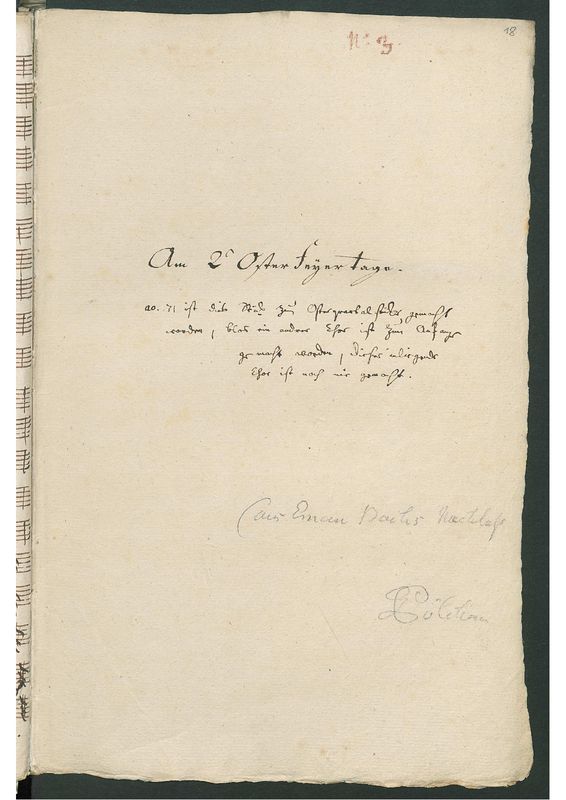 18
No 3.
Am 2ᵗ Oster Feyer Tage.
ao. 71 ist dies Stück zum Osterquartalstück gemacht
worden, blos ein andrer Chor ist zum Anfange
gemacht worden, dieses inliegende
Chor ist noch nie gemacht.
(aus Eman Bachs Nachlaß
Pölchau